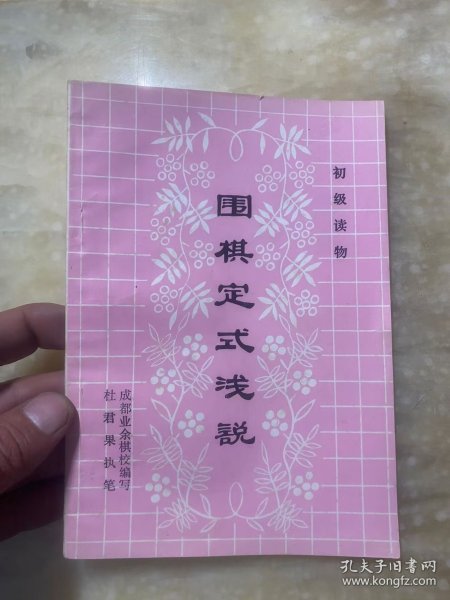 初级读物
围棋定式浅説
成都业余棋校编写
杜君果执笔
孔夫子旧书网
www.kongfz.com